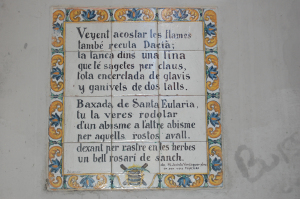 Veyent acostar les flames
també recula Daciá;
la tanca dins una tina
que té sagetes per claus,
tota encerclada de glavis
y ganivets de dos talls.
Baxada de Santa Eularia,
tu la veres rodolar
d'un abisme a l'altre abisme
per aquells rostos avall,
dexant per rastre en les herbes
un bell rosari de sanch.